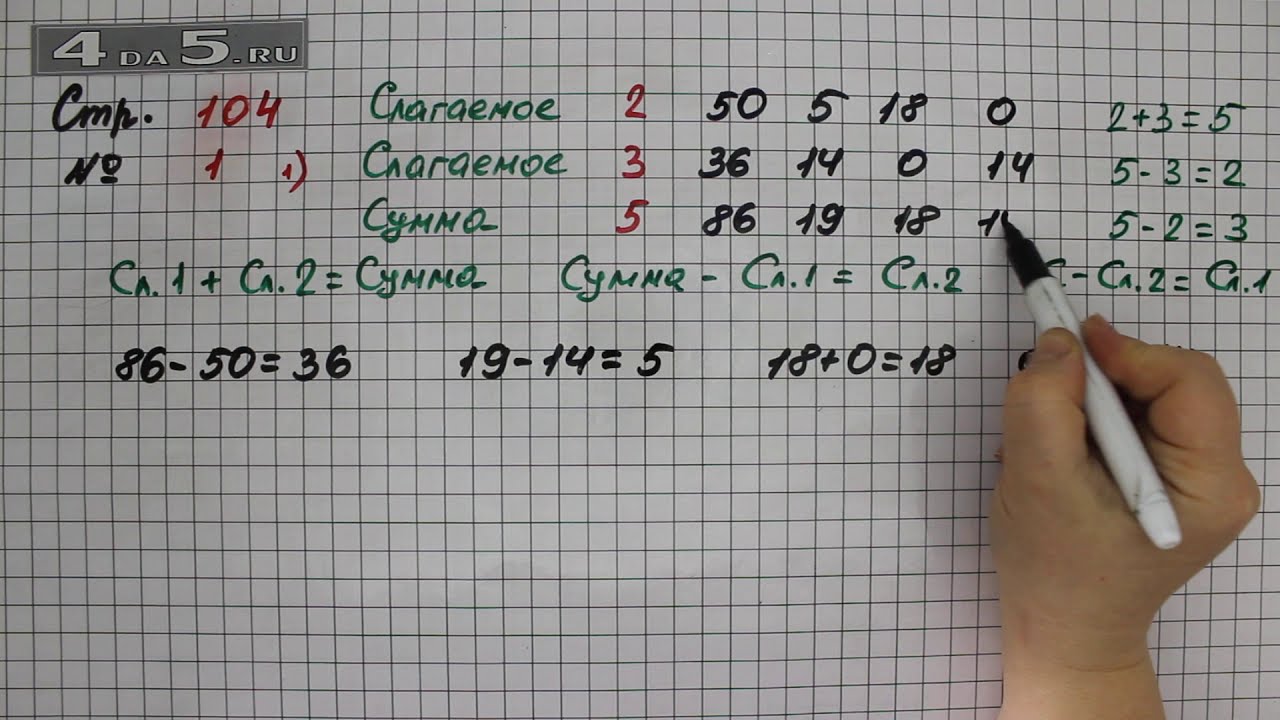 4DA5.RU
Стр. 104 Слагаемое 2 50 5 18 0 2+3=5
№ 1 1) Слагаемое 3 36 14 0 14 5-3=2
Сумма 5 86 19 18 5-2=3
Сл.1 + Сл.2 = Сумма Сумма - Сл.1 = Сл.2 - Сл.2 = Сл.1
86-50=36 19-14=5 18+0=18